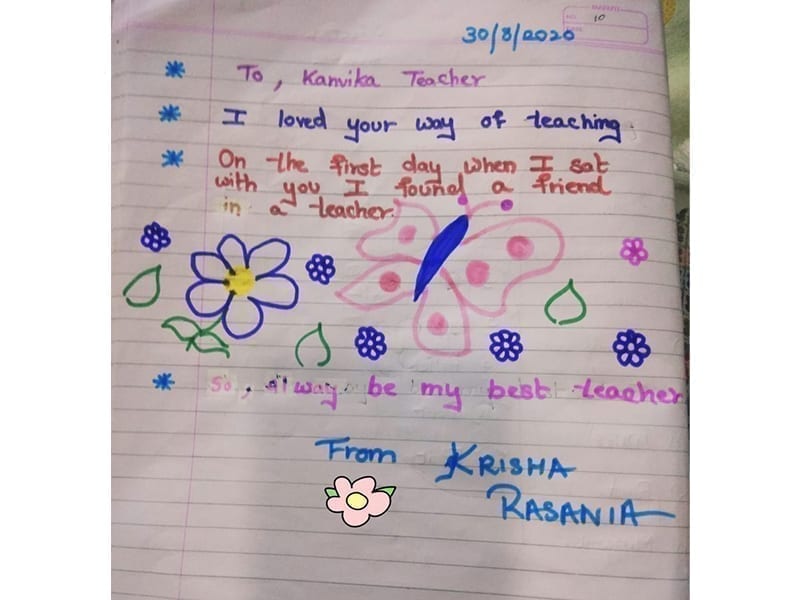 10
30/8/2020
To, Kanvika Teacher
I loved your way of teaching.
On the first day when I sat
with you I found a friend
in a teacher.
So, alway be my best teacher
From KRISHA
RASANIA